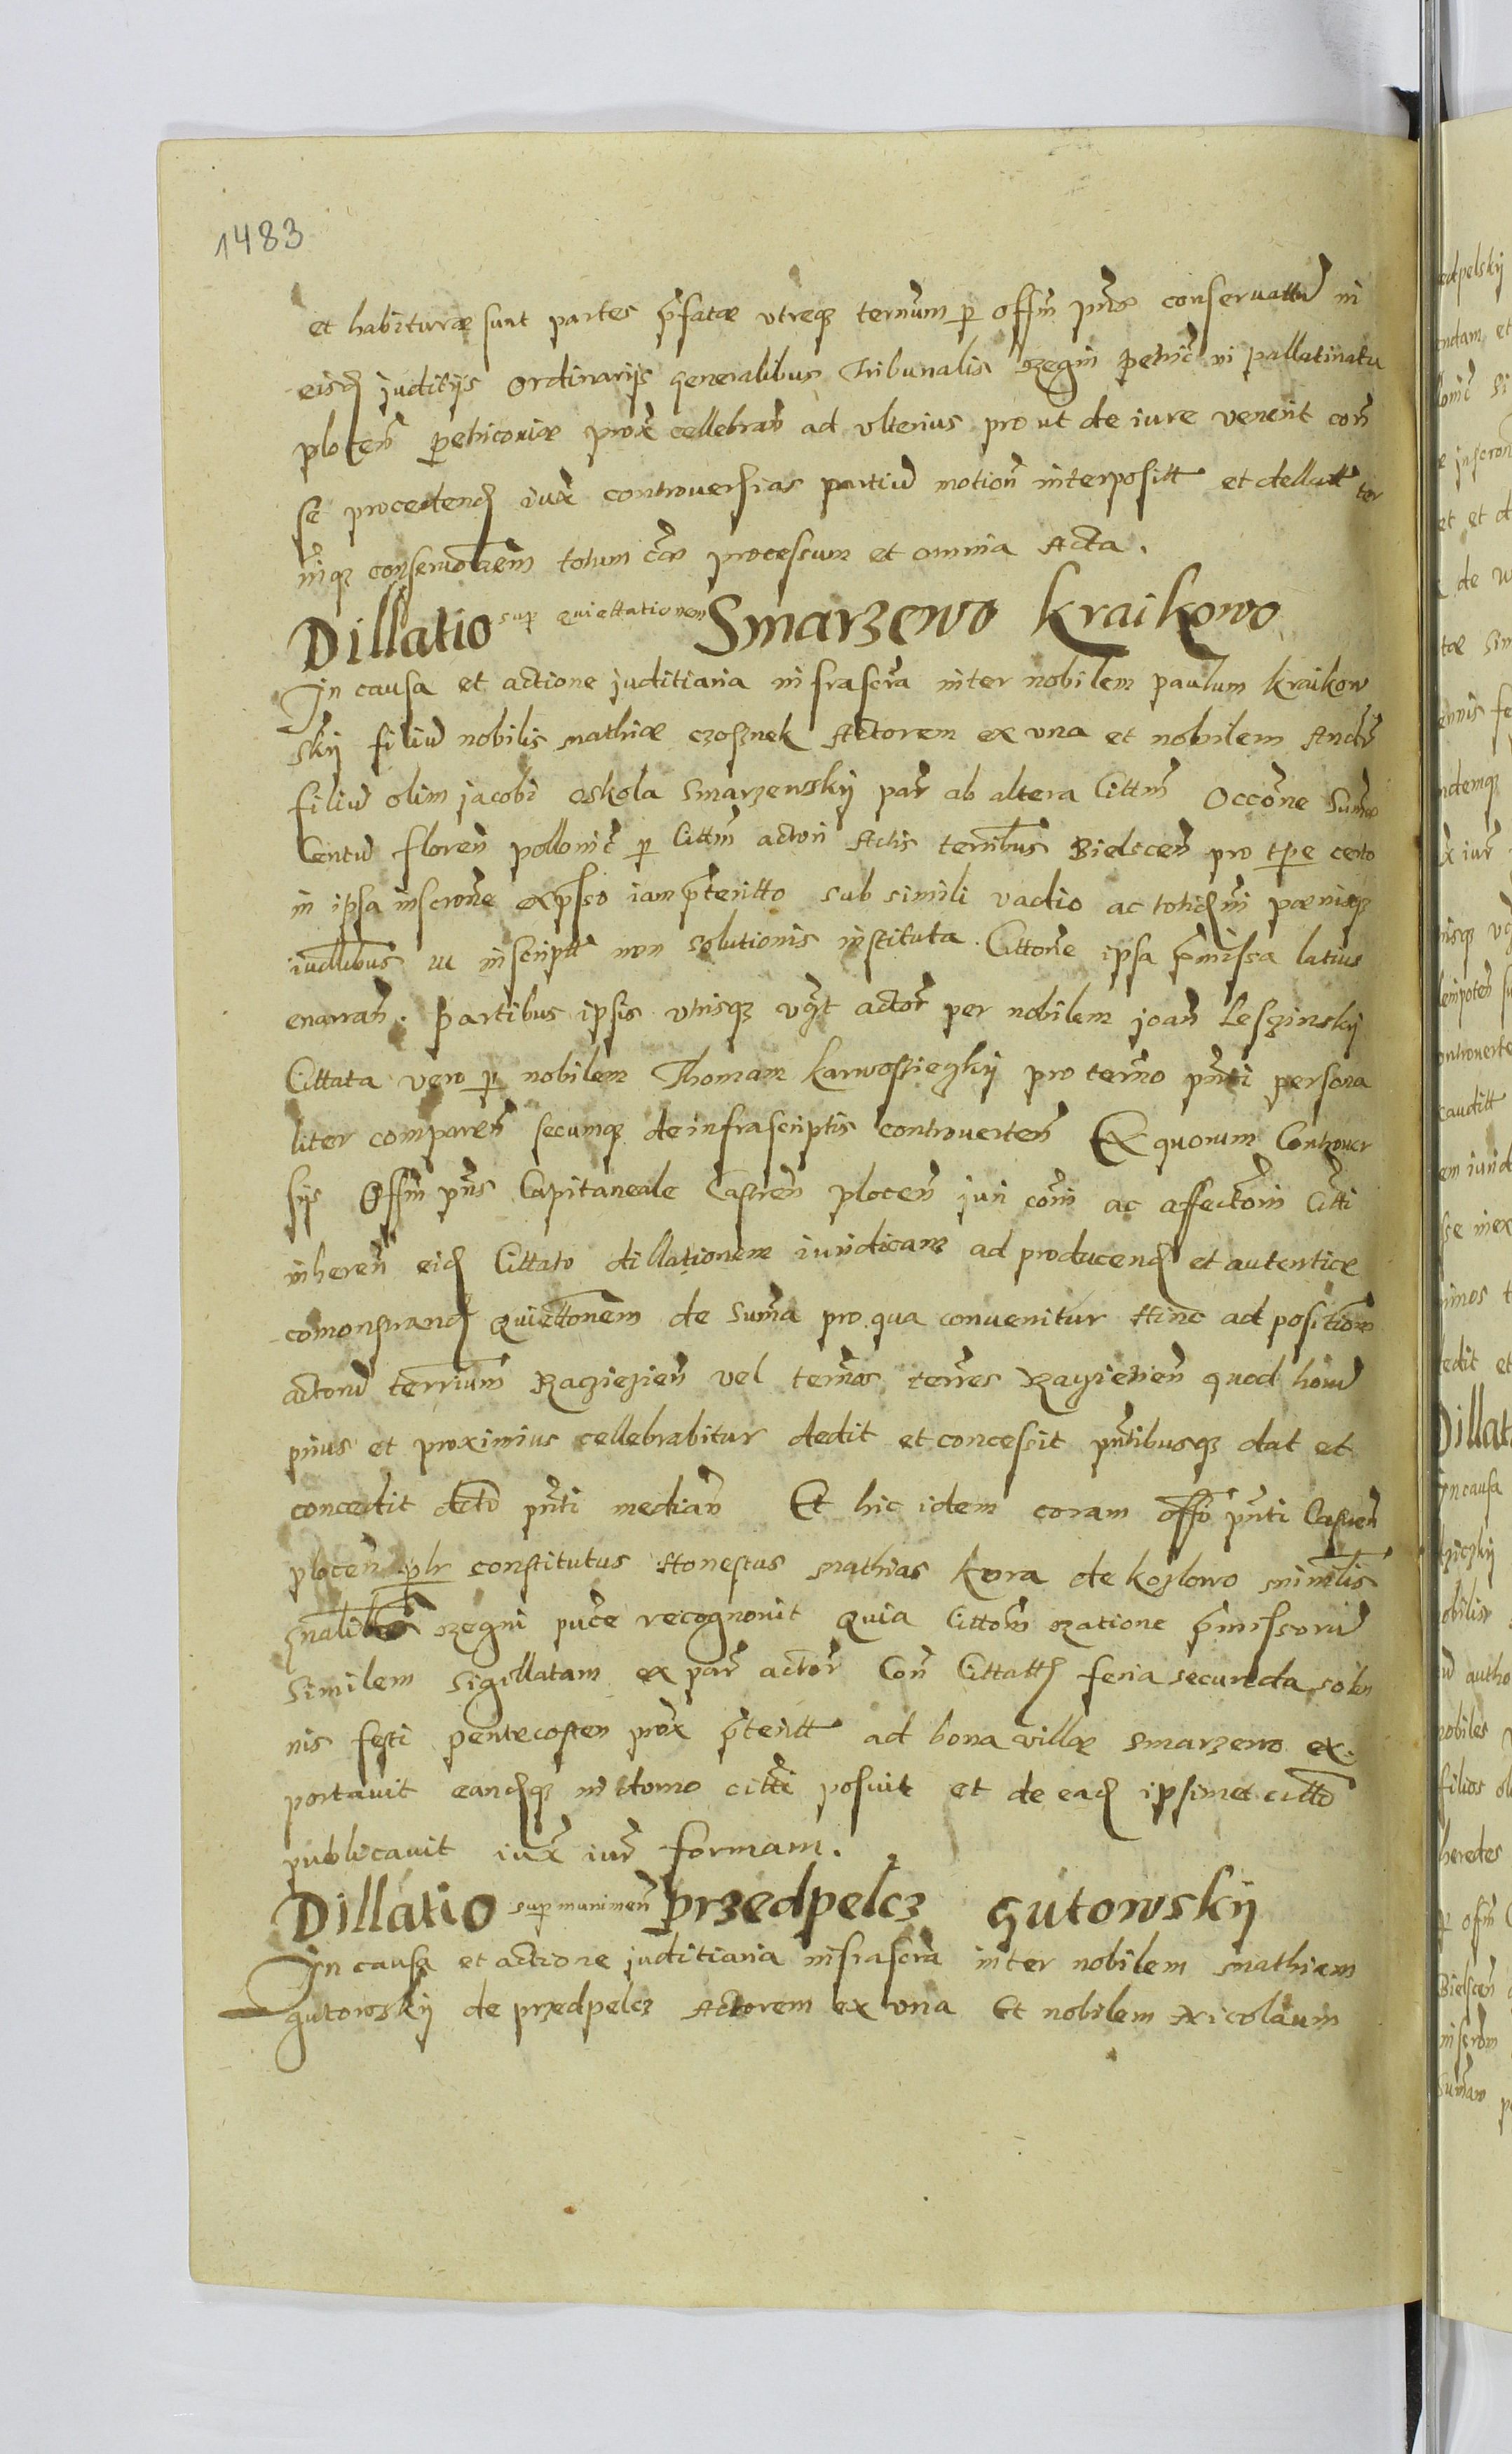 1483
et habituræ sunt partes p̃fatæ utreq₃ terminum p offm p̃ns conservattũ in
eisd judityis Ordinariis generalibus Tribunalis Regni petric̃ in pallatinatu
plocen̄ petricoviæ prox̃ cellebran̄ ad ulterius prout de iure venerit con̄
se procedend̃ iux̃ controversias partiũ motion̄ interpositt et dellatt ter
miq₃ conservatõem totum cãæ processum et omnia Acta.
Dillatio sup quiettationem Smarzewo Kraikowo
In causa et actione juditiaria infrascr̃a inter nobilem paulum Kraikow
skij filiũ nobilis Mathiæ czosznek Actorem ex una et nobilem Andr̃
filiũ olim jacobi oskola Smarzewskij par̃ ab altera Cittm̃ Occõne Sum̃æ
Centũ floren̄ pollonic̃ p Cittm̃ actori Actis terribus Bielscen̄ pro tpe certo
in ipsa inscrone exp̃sso iam p̃teritto sub simili vadio ac totid̃m pænisq₃
iudlibus ut inscriptt non solutionis instituta. Cittone ipsa p̃missa latius
enarran̄. Partibus ipsis utrisq₃ ugt actor̃ per nobilem joan̄ Leszinskij
Cittata vero p nobilem Thomam Karwosziezkij pro termõ p̃nti persona
liter comparen̄ secumq₃ de infrascriptis controverten̄ Ex quorum Controver
siis Offm p̃ns Capitaneale Castren̄ plocen̄ juri com̄i ac affectõni Citti
inheren̄ eid̃ Cittato dillationem iuridicam ad producend̃ et autentice
comonstrand̃ Quiettõnem de Summa pro qua convenitur Hinc ad positionem
actorũ terrium̃ Raziezien̄ vel term̃os terres Raziezien̄ quod horũ
prius et proximius cellebrabitur dedit et concessit p̃ntibusq₃ dat et
concedit dcto p̃nti median̄ Et hic idem coram offo p̃nti Castren̄
plocen̄ plr constitutus Honestus Mathias Kora de Kozlowo minrlis
gnalibus Regni puce recognovit Quia Cittom̃ ratione p̃missorũ
Similem Sigillatam ex par̃ actor̃ Con̄ Cittatt̃ feria secunda solen
nis festi pentecosten prox̃ p̃teritt ad bona villæ Smarzewo ex
portavit eand̃q₃ in domo citti posuit et de ead̃ ipsimet citto
publicavit iux̃ iur̃ formam.
Dillatio sup munimen̄ Przedpelcz Gutowskij
In causa et actione juditiaria infrascr̃a inter nobilem Mathiam
gutowskij de przedpelcz Actorem ex una Et nobilem Nicolaum